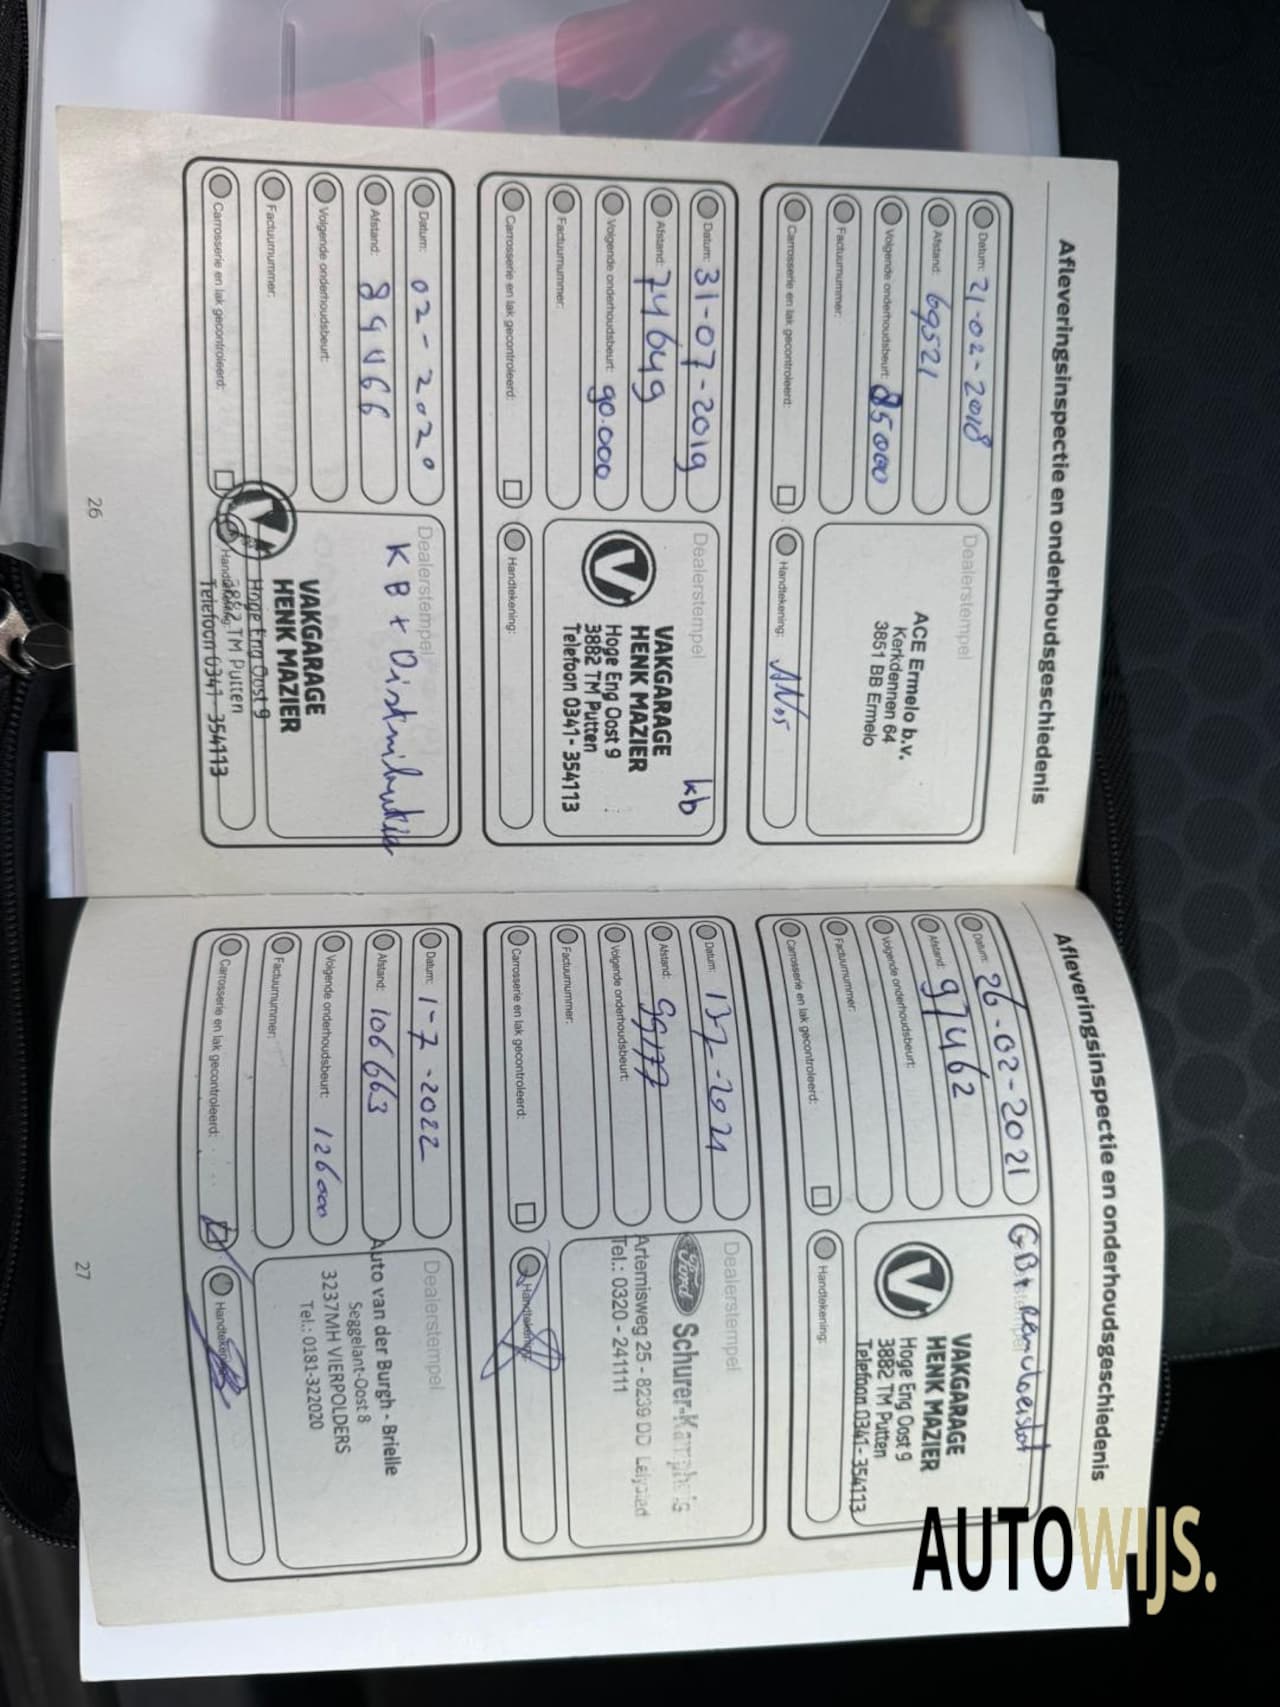 Afleveringsinspectie en onderhoudsgeschiedenis
Datum: 21-02-2018
Afstand: 69521
Volgende onderhoudsbeurt: 85000
Factuurnummer:
Carrosserie en lak gecontroleerd:
Dealerstempel
ACE Ermelo b.v.
Kerkdennen 64
3851 BB Ermelo
Handtekening:
Datum: 31-07-2019
Afstand: 74649
Volgende onderhoudsbeurt: 90.000
Factuurnummer:
Carrosserie en lak gecontroleerd:
Dealerstempel
kb
VAKGARAGE
HENK MAZIER
Hoge Eng Oost 9
3882 TM Putten
Telefoon 0341- 354113
Handtekening:
Datum: 02-2020
Afstand: 89466
Volgende onderhoudsbeurt:
Factuurnummer:
Carrosserie en lak gecontroleerd:
Dealerstempel
KB + Distributie
VAKGARAGE
HENK MAZIER
Hoge Eng Oost 9
3882 TM Putten
Telefoon 0341- 354113
Handtekening:
26
Afleveringsinspectie en onderhoudsgeschiedenis
Datum: 26-02-2021
Afstand: 97462
Volgende onderhoudsbeurt:
Factuurnummer:
Carrosserie en lak gecontroleerd:
GB+ remvloeistof
VAKGARAGE
HENK MAZIER
Hoge Eng Oost 9
3882 TM Putten
Telefoon 0341- 354113
Handtekening:
Datum: 13-7-2021
Afstand: 99177
Volgende onderhoudsbeurt:
Factuurnummer:
Carrosserie en lak gecontroleerd:
Dealerstempel
Ford
Artemisweg 25 - 8239 DD Lelystad
Tel.: 0320 - 241111
Handtekening:
Datum: 1-7-2022
Afstand: 106663
Volgende onderhoudsbeurt: 126000
Factuurnummer:
Carrosserie en lak gecontroleerd:
Dealerstempel
Auto van der Burgh - Brielle
Seggelant-Oost 8
3237MH VIERPOLDERS
Tel.: 0181-322020
Handtekening:
27
AUTOWIJS.